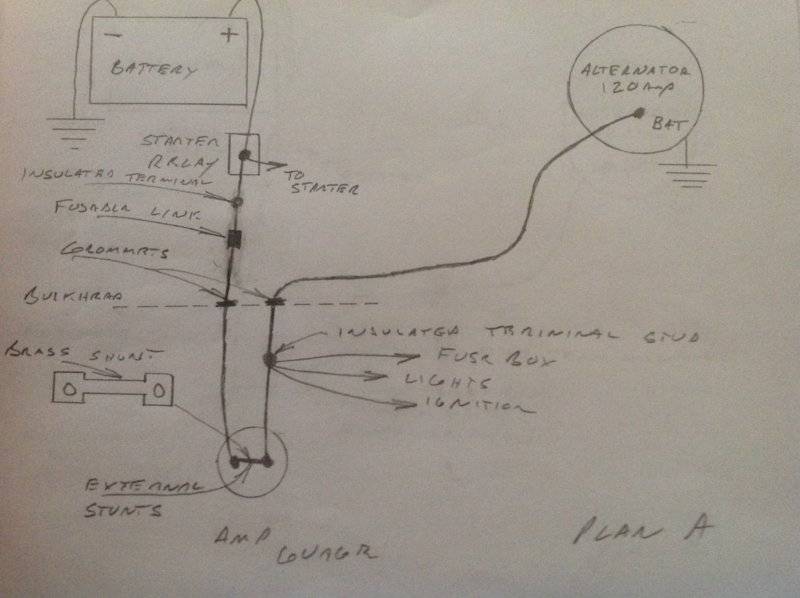 - +
BATTERY
ALTERNATOR
120 AMP
BAT
STARTER
RELAY
TO
STARTER
INSULATED TERMINAL
FUSABLE LINK
GROMMETS
BULKHEAD
INSULATED TERMINAL STUD
FUSE BOX
LIGHTS
IGNITION
BRASS SHUNT
EXTERNAL
STUNTS
AMP
GUAGE
PLAN A